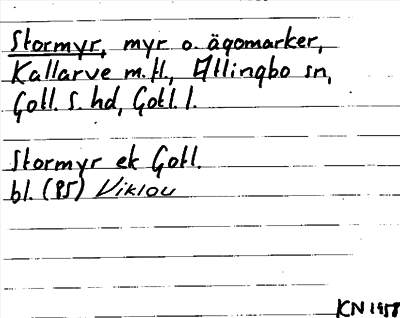 Stormyr, myr o. ägomarker,
Kallarve m.fl., Atlingbo sn,
Gotl. S. hd, Gotl. l.
Stormyr ek Gotl.
bl. (85) Viklau
KN 1958